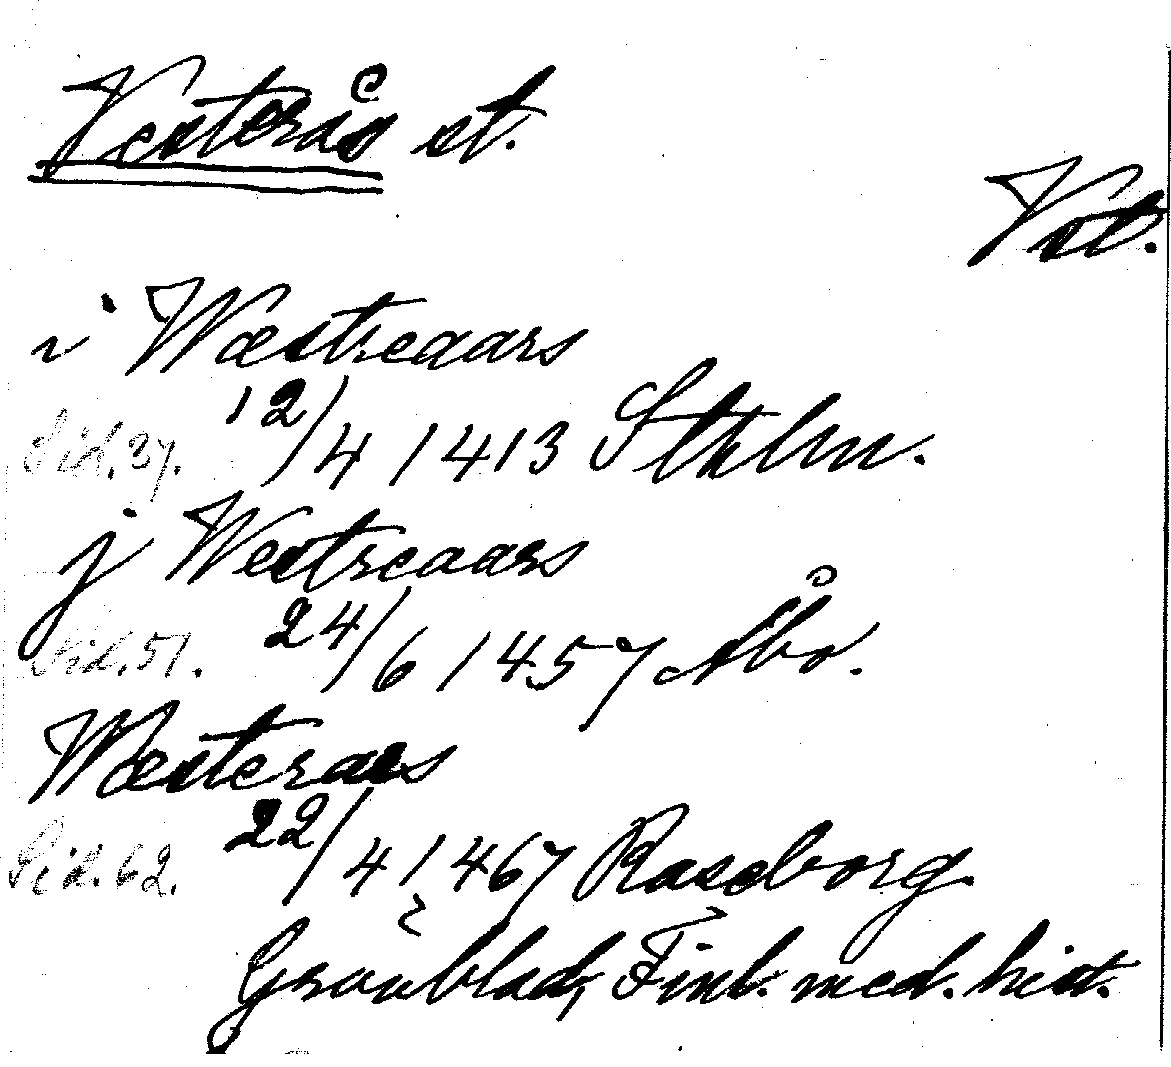 Vesterås st.
Vst.
i Wæstreaars
Sid. 37. 12/4 1413 Sthlm.
j Westreaars
Sid. 51. 24/6 1457 Åbo.
Wæsteraas
Sid. 62. 22/4 1467 Raseborg.
Grönblad, Finl. med. hist.